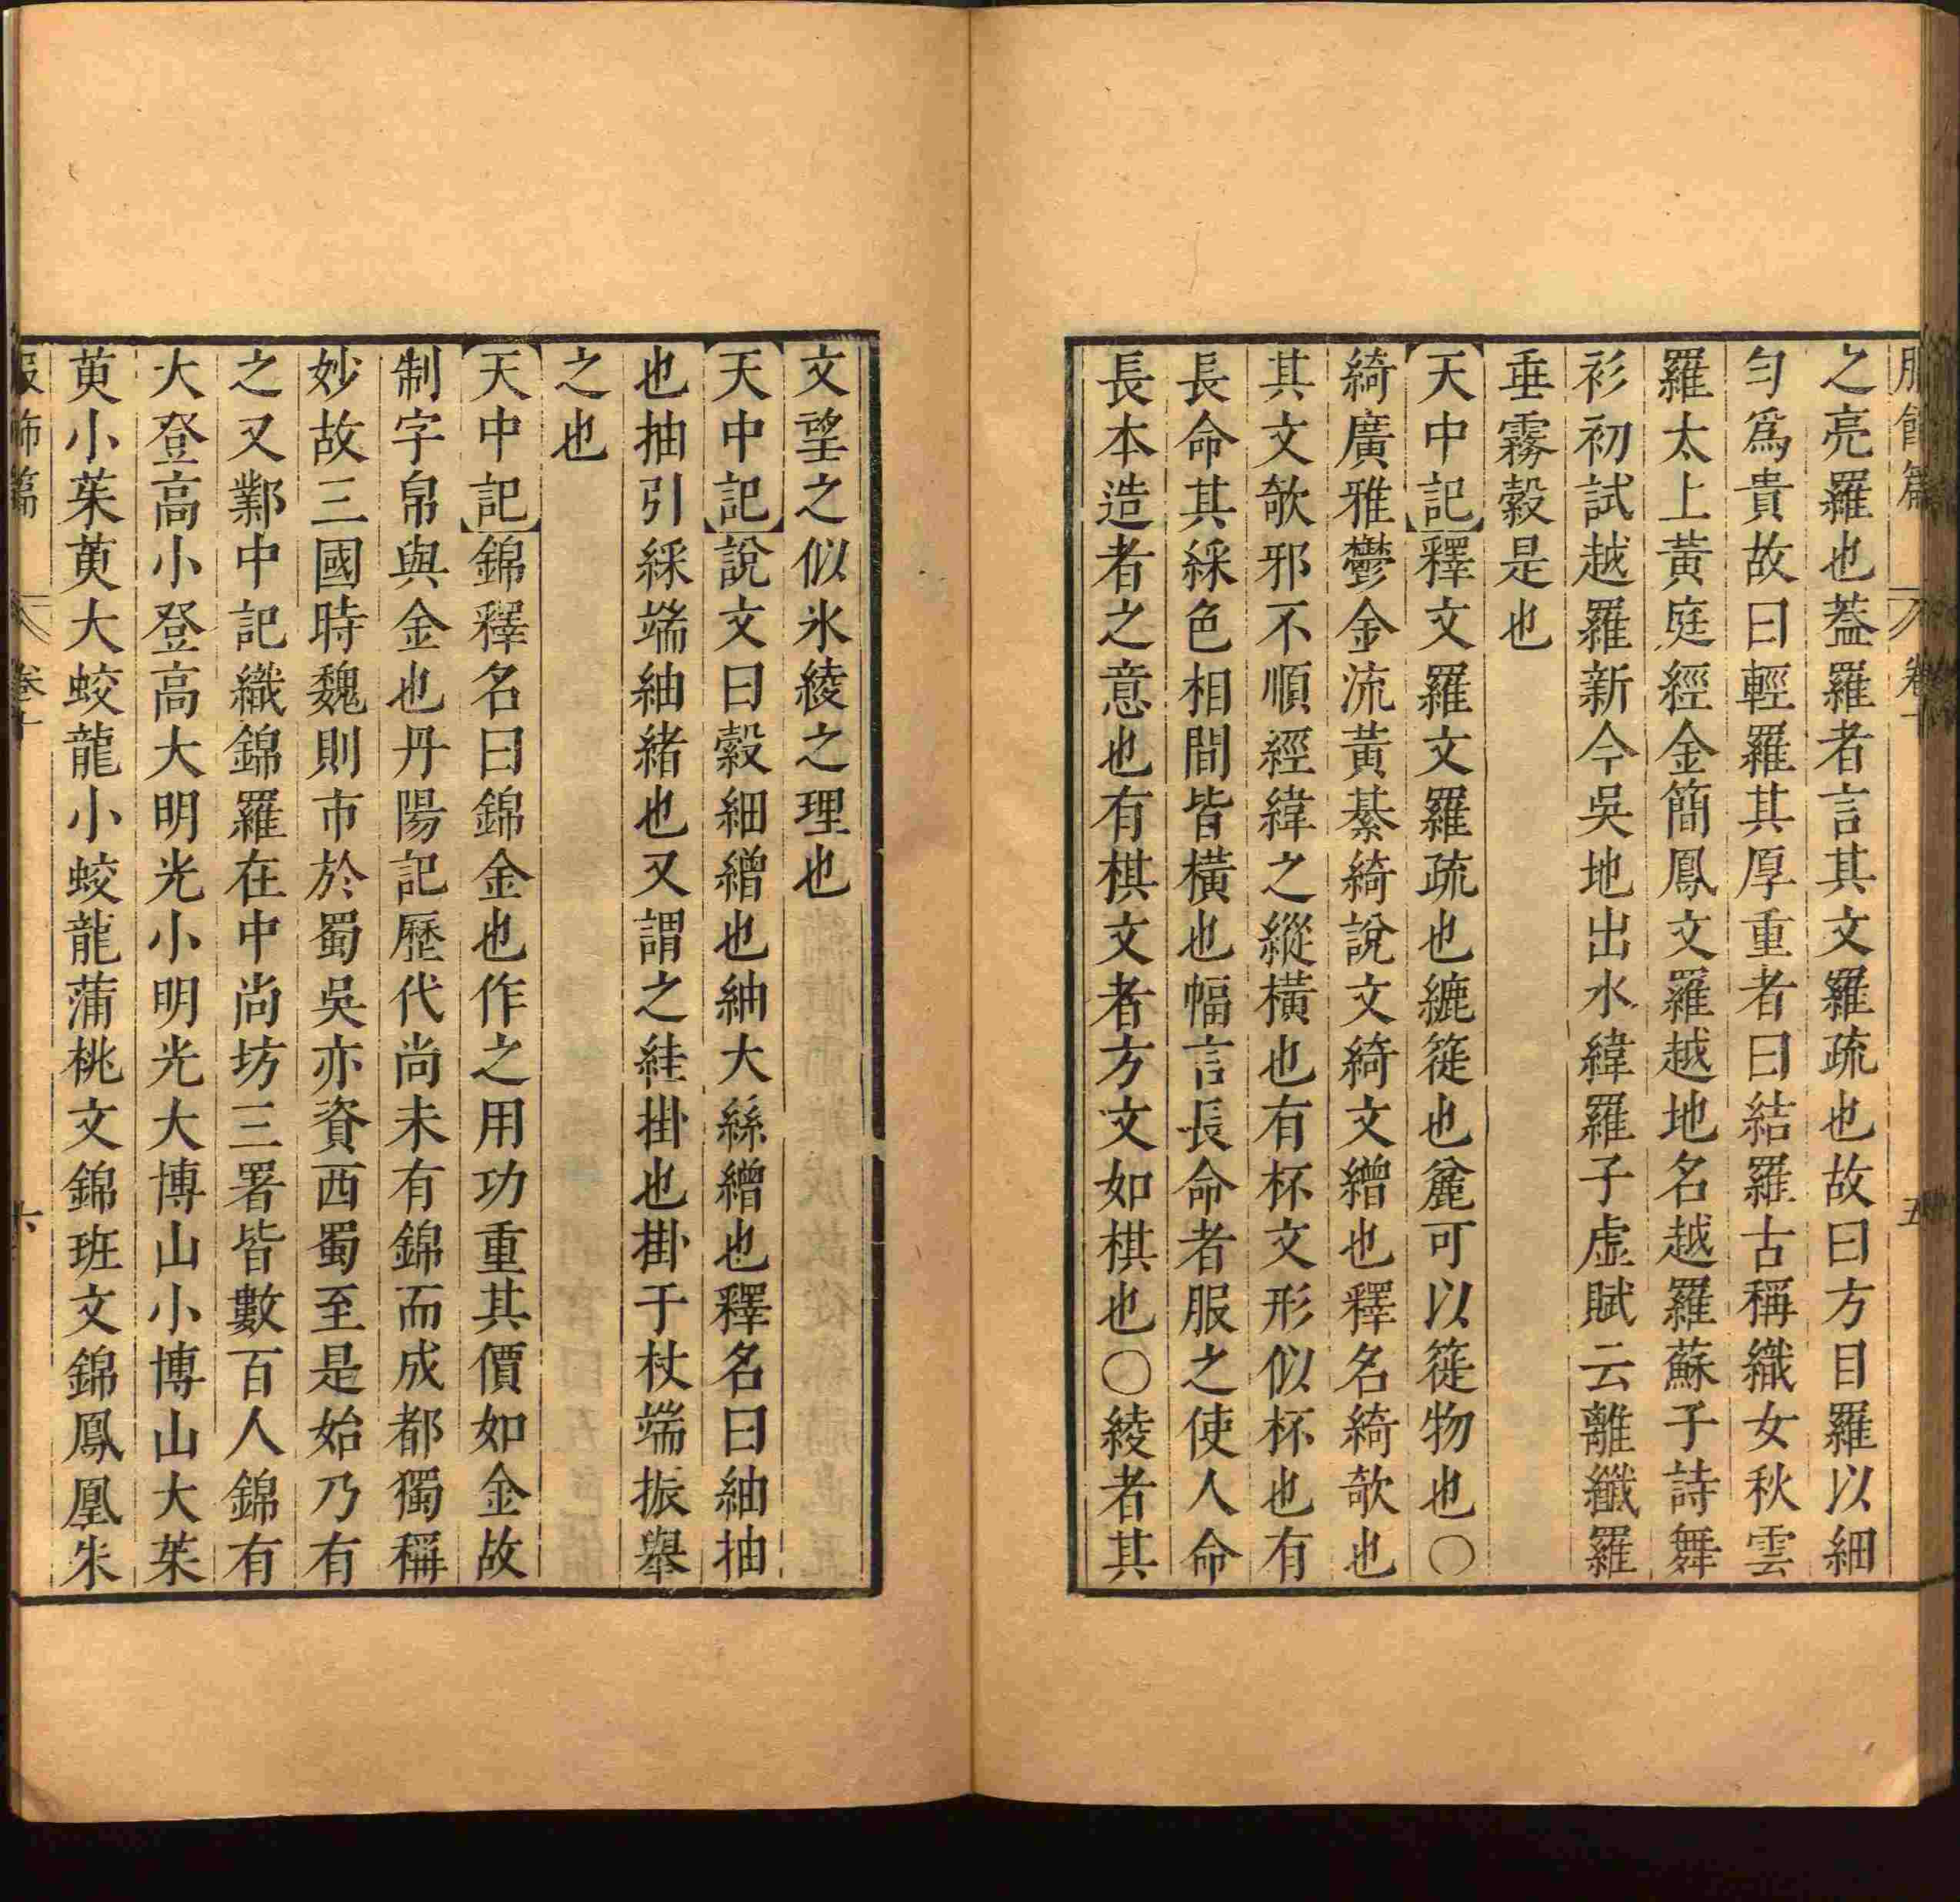 服飾篇 卷十 五
之亮羅也葢羅者言其文羅疏也故曰方目羅以細
勻爲貴故曰輕羅其厚重者曰結羅古稱織女秋雲
羅太上黃庭經金簡鳳文羅越地名越羅蘇子詩舞
衫初試越羅新今吳地出水緯羅子虛賦云離纖羅
垂霧縠是也
【天中記】釋文羅文羅疏也纚簁也麄可以簁物也〇
綺廣雅鬱金流黃綦綺說文綺文繒也釋名綺欹也
其文欹邪不順經緯之縱橫也有杯文形似杯也有
長命其綵色相間皆橫也幅言長命者服之使人命
長本造者之意也有棋文者方文如棋也〇綾者其
文望之似氷綾之理也
【天中記】說文曰縠細繒也紬大絲繒也釋名曰紬抽
也抽引綵端紬緒也又謂之絓掛也掛于杖端振舉
之也
【天中記】錦釋名曰錦金也作之用功重其價如金故
制字帛與金也丹陽記歷代尚未有錦而成都獨稱
妙故三國時魏則市於蜀吳亦資西蜀至是始乃有
之又鄴中記織錦羅在中尚坊三署皆數百人錦有
大登高小登高大明光小明光大博山小博山大茱
萸小茱萸大蛟龍小蛟龍蒲桃文錦班文錦鳳凰朱
服飾篇 卷十 六